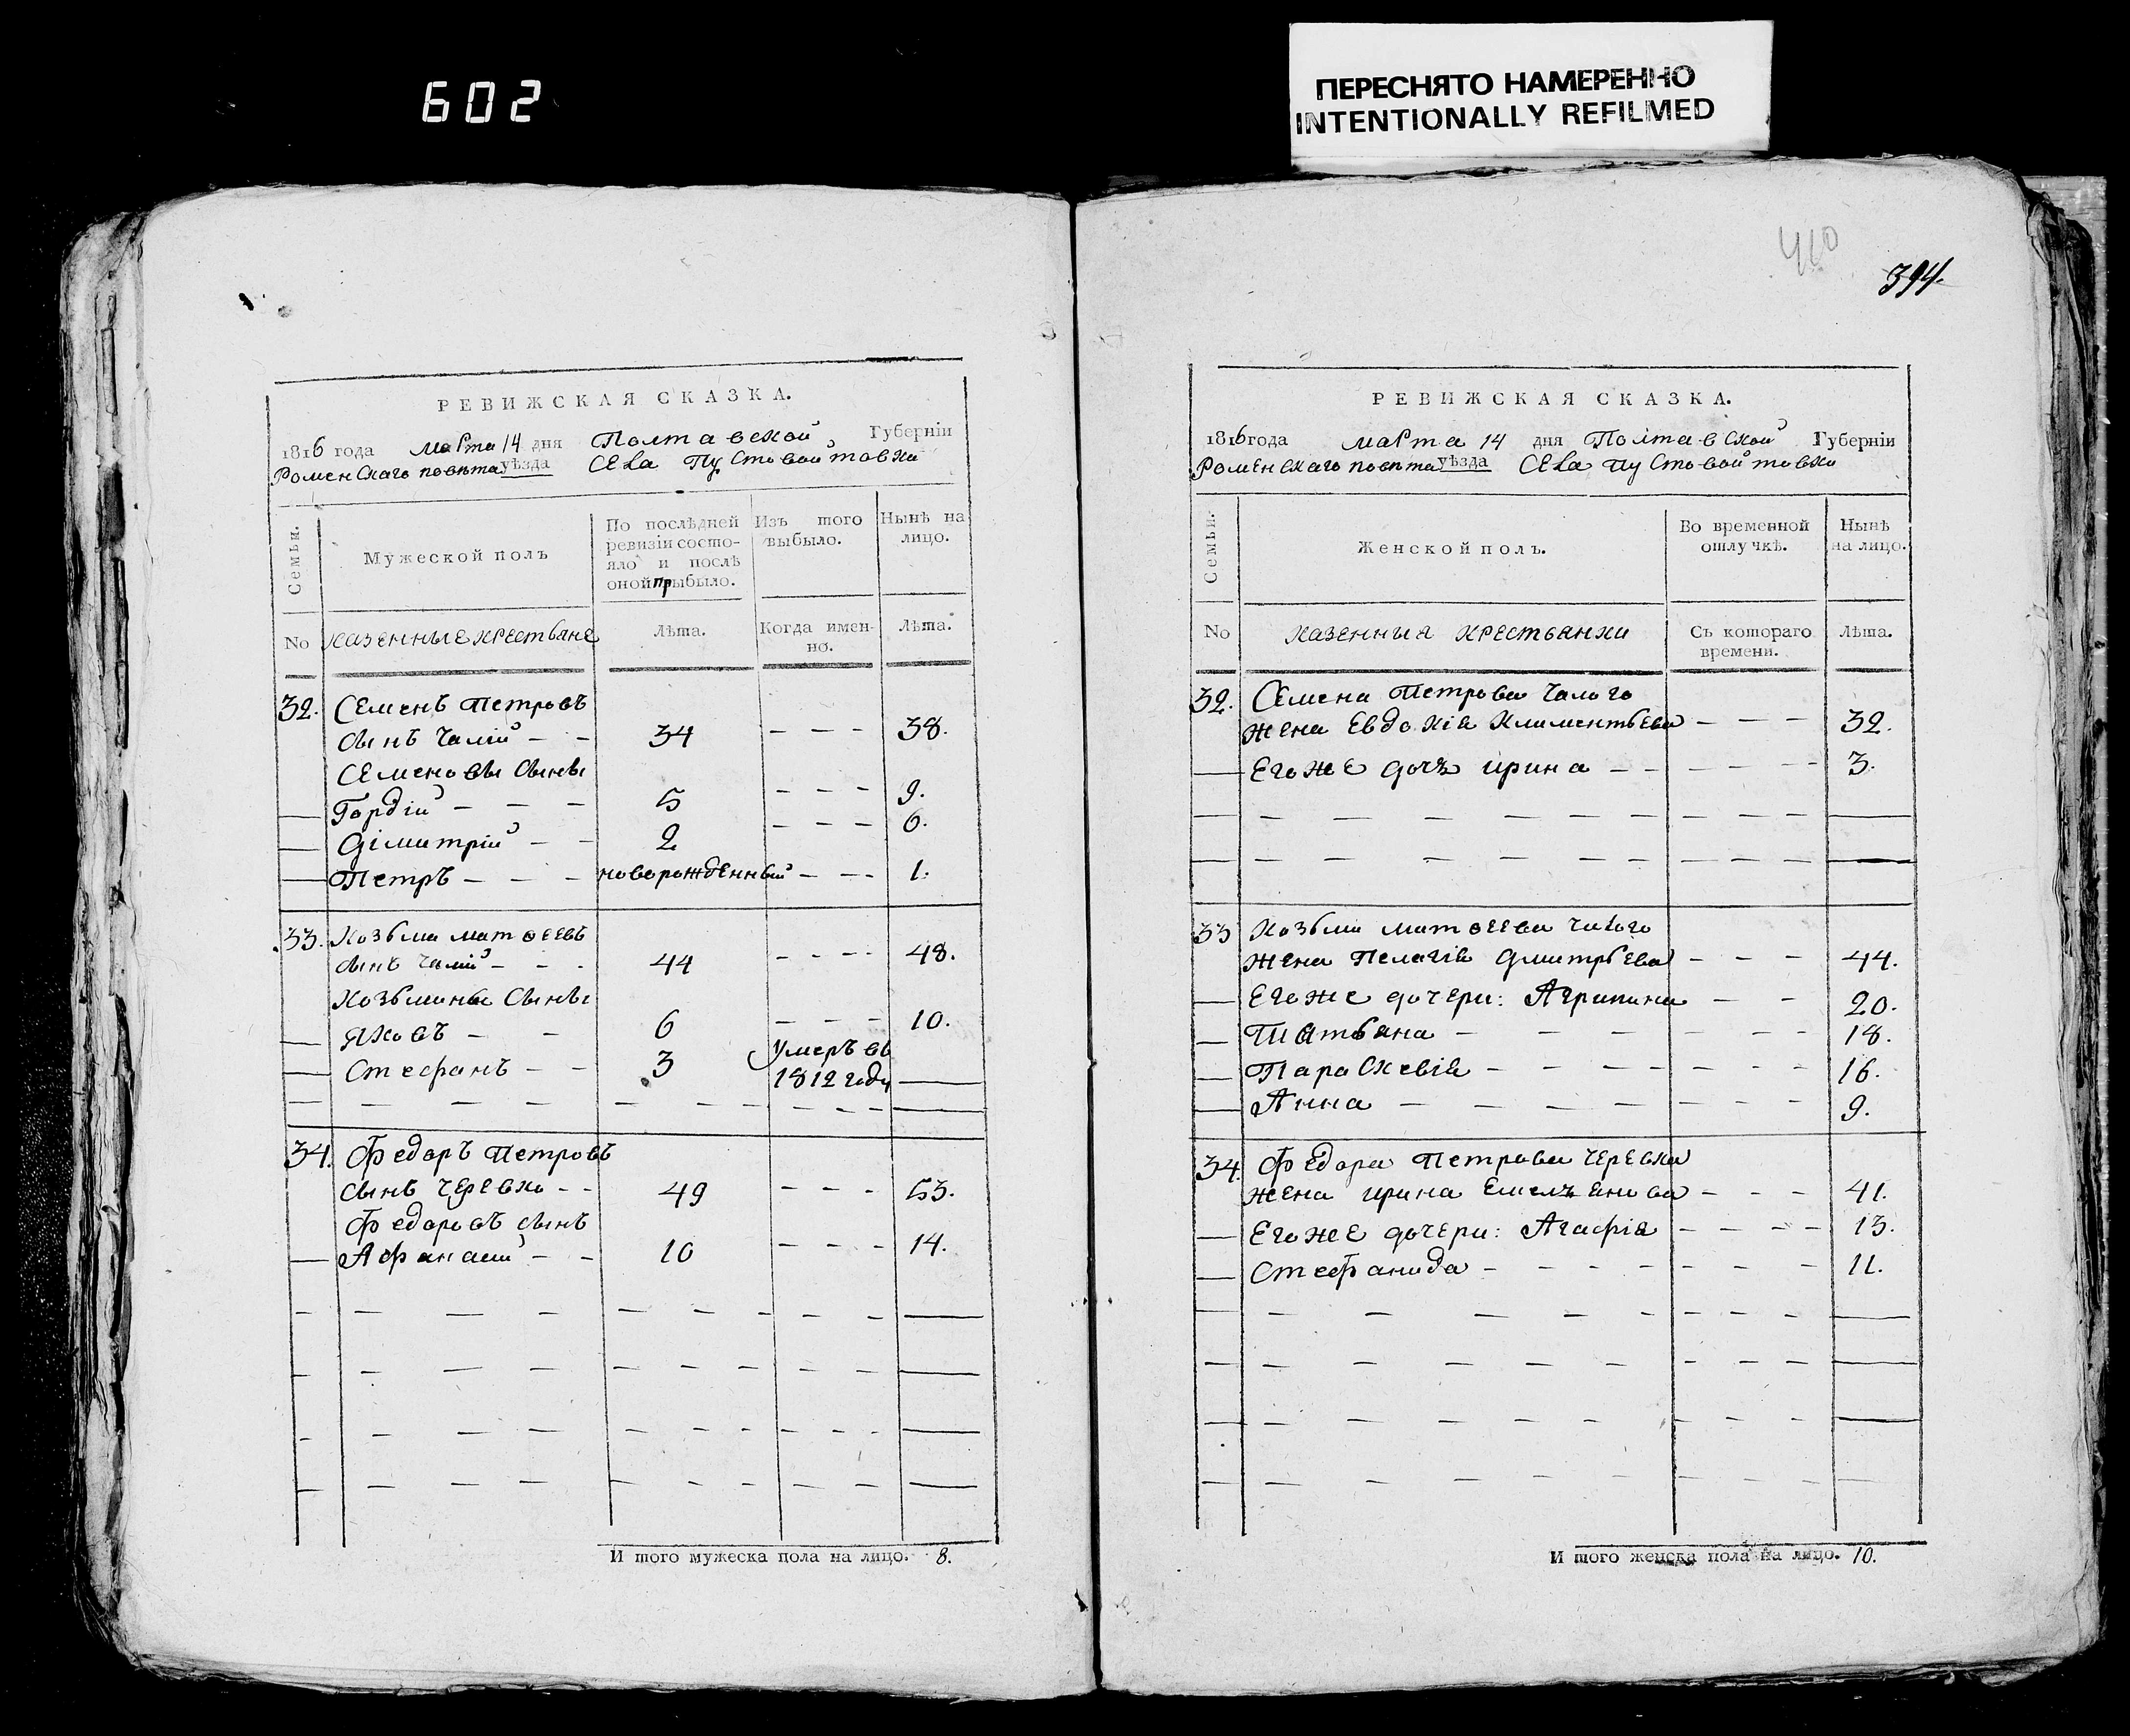 602
ПЕРЕСНЯТО НАМЕРЕННО
INTENTIONALLY REFILMED
РЕВИЖСКАЯ СКАЗКА.
1816 года марта 14 дня Полтавской Губерніи
Роменскаго повѣта уѣзда села Пустовойтовки
Семьи.
Мужеской полъ
По послѣдней
ревизіи состо-
яло и послѣ
оной прибыло.
Изъ того
выбыло.
Нынѣ на
лицо.
No казенные крестьяне Лѣта. Когда имен-
но. Лѣта.
32. Семенъ Петровъ
сынъ Чалий - - 34 - - - 38.
Семеновы сыны
Гордій - - - 5 - - - 9.
Димитрій - - 2 - - - 6.
Петръ - - - новорожденный - - - 1.
33. Козьма Матвеевъ
сынъ Чалий - - - 44 - - - - 48.
Козьмины сыны
Яковъ - - 6 - - - 10.
Стефанъ - - 3 Умеръ въ
1812 году
34. Федоръ Петровъ
сынъ Черевко - - 49 - - - 53.
Федоровъ сынъ
Афанасий - - 10 - - - 14.
И того мужеска пола на лицо. 8.
410
394.
РЕВИЖСКАЯ СКАЗКА.
1816 года марта 14 дня Полтавской Губерніи
Роменскаго повѣта уѣзда села Пустовойтовки
Семьи.
Женской полъ.
Во временной
отлучкѣ.
Нынѣ
на лицо.
No казенныя крестьянки Съ котораго
времени. Лѣта.
32. Семена Петрова Чалого
жена Евдокія Климентьева - - - 32.
Его же дочь Ирина - - - - - - 3.
33 Козьми Матвеева Чалого
жена Пелагія Дмитрьева - - - 44.
Его же дочери: Агрипина - - 20.
Татьяна - - - - - - 18.
Параскевія - - - - - - - - 16.
Анна - - - - - - - 9.
34. Федора Петрова Черевка
жена Ирина Емельянова - - - 41.
Его же дочери: Агафія - - - - 13.
Стефанида - - - - - - - - 11.
И того женска пола на лицо. 10.